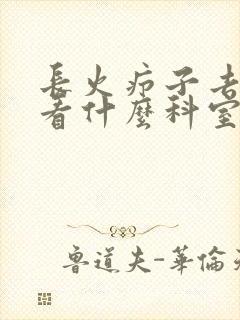 長火疖子去
看什麼科室
魯道夫-華倫